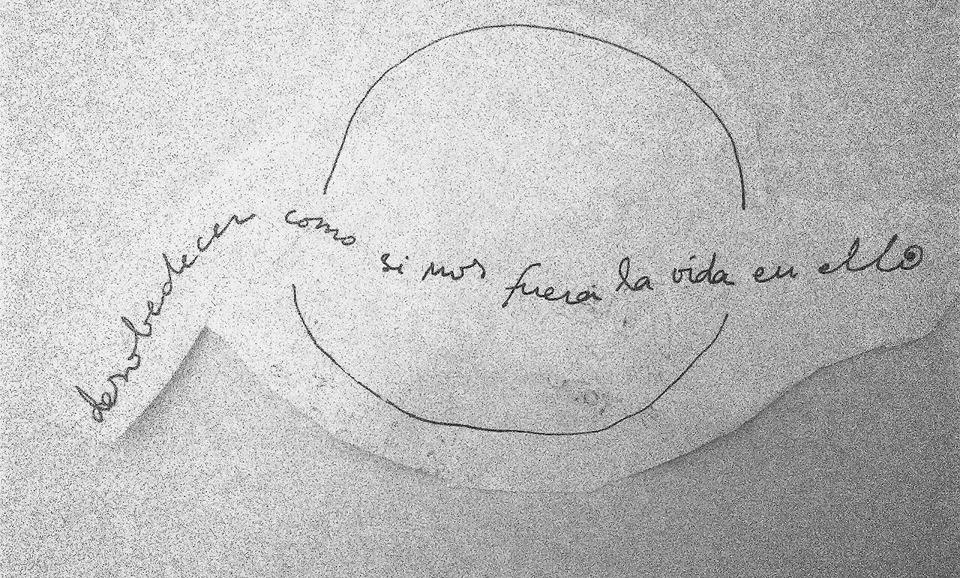 desobedecer como si nos fuera la vida en ello